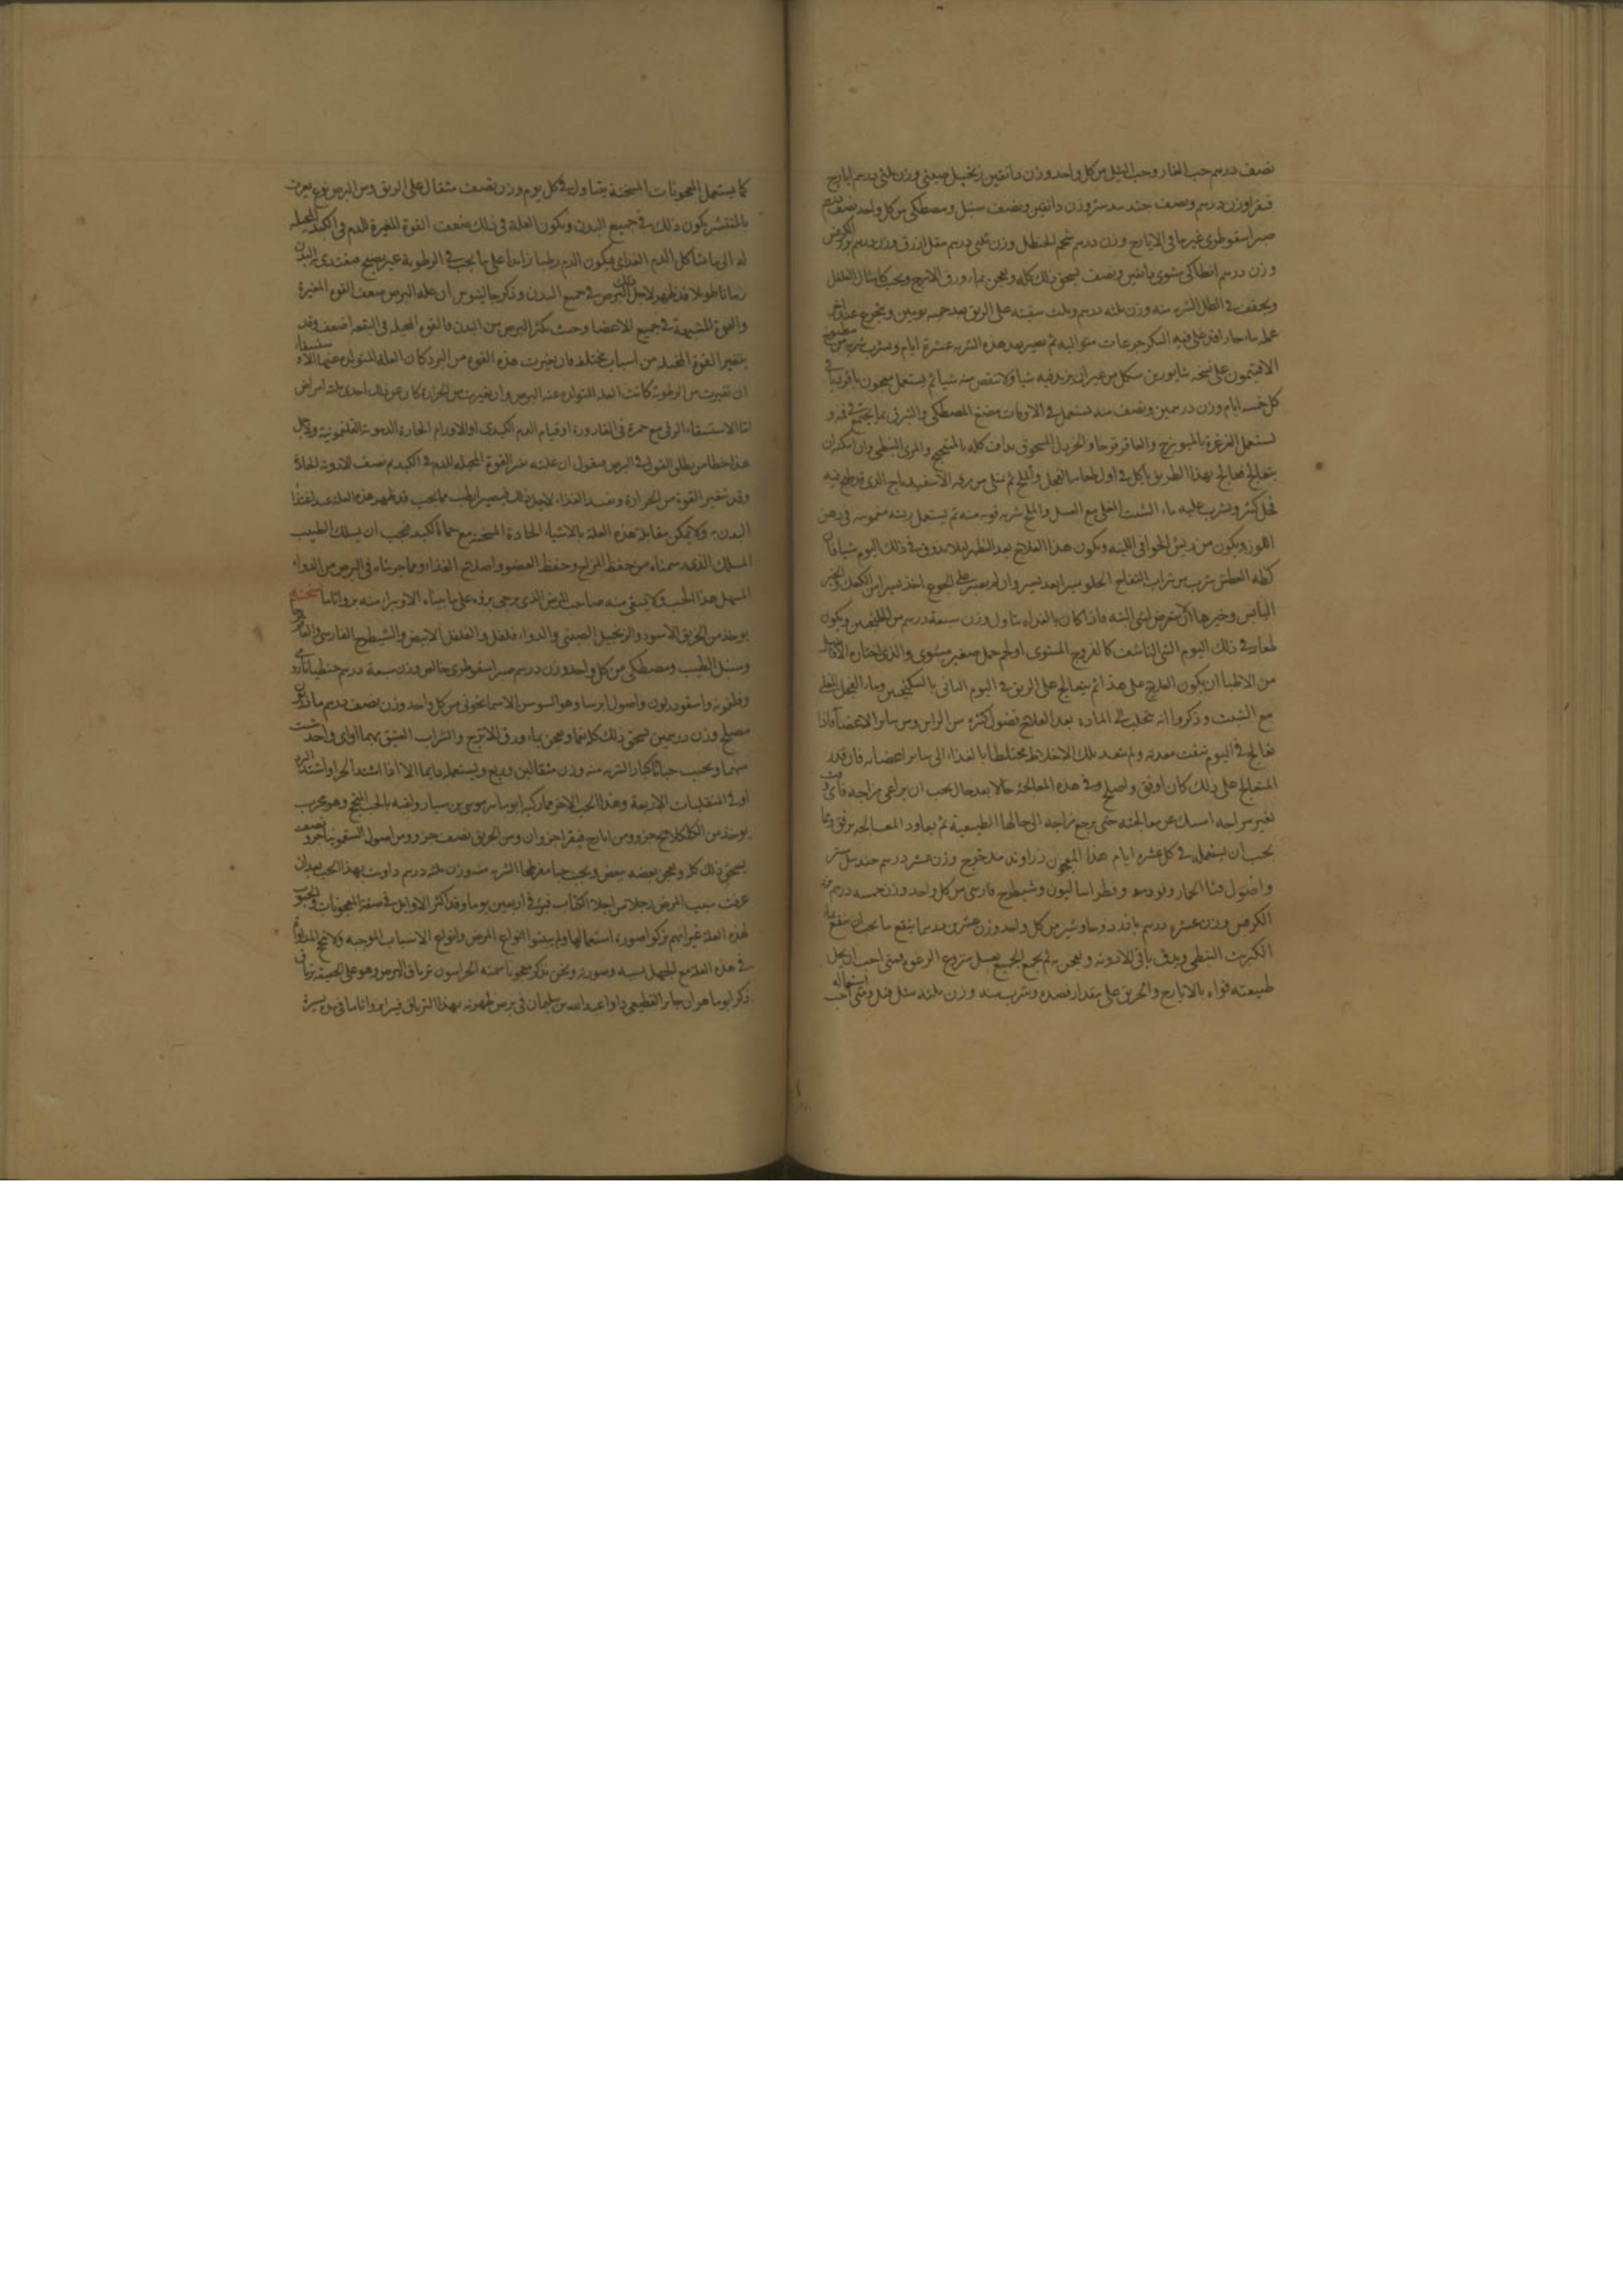 نصف درهم حب الغار وحب النيل من كل واحد وزن دانقين زنجبيل صيني وزن ثلثي درهم ايارج
فيقرا وزن درهم ونصف جند بيدستر وزن دانقين ونصف سنبل ومصطكي من كل واحد نصف درهم
صبر اسقوطري غير ما في الايارج وزن درهم شحم الحنظل وزن ثلثي درهم مقل ازرق وزن درهم بزر الكرفس
وزن درهم انطاكي مشوي دانقين ونصف يسحق ذلك كله ويعجن بماء ورق الاترج ويحبب كامثال الفلفل
ويجفف في الظل الشربه منه وزن ثلثه درهم وثلث سقيته على الريق بعد حميه يومين ويتجرع عند
عمله ماء حار قد غلي فيه السكر جرعات متواليه ثم يصير بعد هذه الشربه عشرة ايام ويشرب شربه من مطبوخ
الافتيمون على نسخه شابور بن سهل من غير ان يزيد فيه شيا ولا ينقص منه شيا ثم يستعمل معجون
كل خمسه ايام وزن درهمين ونصف منه يستعمل في الاوقات مضغ المصطكي والتبزق بما يجتمع في فيه و
يستعمل الغرغرة بالميويزج والعاقرقرحا والخردل المسحوق يداف كله بالميبختج والمري النبطي وان امكنه ان
يتعالج فعالج بهذا الطريق ياكل في اول طعامه الفجل والملح ثم يمتلي من مرقه الاسفيدباج الذي قد طبخ فيه
فجل كثير ويشرب عليه ماء الشبت المغلي مع العسل والملح شربه قويه منه ثم يستعمل ريشه مغموسه في دهن
اللوز ويكون من ريش الخوافي اللينه ويكون هذا العلاج بعد الظهر ليلا يذوق في ذلك اليوم شيا فان
كظه العطش شرب من شراب التفاح الحلو يسيرا بعد يسير وان لم يصبر على الجوع اخذ يسيرا من الكعك والخبز
اليابس وغيرها التي تعرض لشي البته فاذا كان بالغداه تناول وزن سبعة درهم من الجلنجبين ويكون
طعامه في ذلك اليوم الشي الناشف كالفروج المشوي او لحم حمل صغير مشوي والذي اختاره الافاضل
من الاطبا ان يكون العلاج على هذا ثم يتعالج على الريق في اليوم الثاني بالسكنجبين وماء الفجل المغلي
مع الشبت وذكروا انه يتحلب الى المعده بعد العلاج فضول كثيره من الراس ومن ساير الاعضا فاذا
تعالج في اليوم نقيت معدته ولم تنفذ تلك الاخلاط مختلطا بالغذاء الى ساير اعضائه فان قدر
المتعالج على ذلك كان اوفق واصلح وفي هذه المعالجه حالا بعد حال يجب ان يراعي مزاجه
تغير مزاجه امسك عن معالجته حتى يرجع مزاجه الى حالها الطبيعية ثم يعاود المعالجه برفق ومما
يجب ان يستعمله في كل عشره ايام هذا المعجون زراوند مدحرج وزن عشر درهم جند بيدستر
واصول قثا الحمار وفودنج وفطراساليون وشيطرج فارسي من كل واحد وزن خمسه درهم بزر
الكرفس وزن عشره درهم وجاوشير من كل واحد وزن عشرين درهما ينقع ما يجب ان ينقع بماء
الكبريت النبطي ويدق باقي الادويه ويعجن به ثم يجمع الجميع بعسل منزوع الرغوه ومتى احب ان يحل
طبيعته قواه بالايارج والخربق على مقدار قصده ويشرب منه وزن ثلثه مثل قبل ومتى احب استعماله
كما يستعمل المعجونات المسخنة يتناول في كل يوم وزن نصف مثقال على الريق ومن البرص نوع يعرف
بالمنتشر يكون ذلك في جميع البدن وتكون العلة في ذلك ضعف القوة المغيرة للدم في الكبد المحيله
له الى ما شاكل الدم الغذاي فيكون الدم رطبا زايدا على ما يجب في الرطوبة غير نضيج فيغتذي به البدن
زمانا طويلا فيظهر لاجل ذلك البرص في جميع البدن وذكر جالينوس ان عله البرص ضعف القوه المغيرة
والقوة المشبهة في جميع الاعضا وحيث يكثر البرص من البدن فالقوه المحيله في البقعه اضعف وقد
يتغير القوة المحيله من اسباب مختلفه فان تغيرت هذه القوه من البرد كان العله المتولده عنها الاستسقاء
ان تغيرت من الرطوبه كانت العله المتولده عنه البرص وان تغيرت من الحراره كان عن ذلك احدى ثلثه امراض
اما الاستسقاء الزقي مع حمرة في القارورة او قيام الدم الكبدي او الاورام الحارة الدموية الفلغمونية ولاجل
هذا خطا من يطلق القول في البرص فيقول ان علته تغير القوة المحيله للدم في الكبد ثم يصف الادويه الحادة
وقد تتغير القوة من الحرارة ويفسد الغذاء لاجل ذلك فيصير ارطب مما يجب فتظهر هذه العله عند اغتذا
البدن به ولا يمكن مقابلة هذه العلة بالاشياء الحادة المسخنه مع حماء الكبد فيجب ان يسلك الطبيب
المسلك الذي رسمناه من حفظ المزاج وحفظ العضو واصلاح الغذاء ومما جربناه في البرص من الدواء
المسهل هذا الحب ولا يسقى منه صاحب المرض الذي يرجى برؤه على ما بيناه الا ويبرا منه بروا تاما نسخته
يوخذ من الخربق الاسود والزنجبيل الصيني والدواء فلفل والفلفل الابيض والشيطرج الفارسي
وسنبل الطيب ومصطكي من كل واحد وزن درهم صبر اسقوطري خالص وزن سبعة درهم جنطيانا رومي
واسقورديون واصول ايرسا وهو السوسن الاسمانجوني من كل واحد وزن نصف درهم ماذريون
مصلح وزن درهمين يسحق ذلك كله نعما ويعجن بماء ورق الاترج والشراب العتيق بهما او اي واحد شيت
منهما ويحبب حبا كبارا الشربه منه وزن مثقالين وربع ويستعمله دايما الا اذا اشتد الحر او اشتد البرد
او في المنقلبات الاربعة وهذا الحب الاخر مما ركبه ابو ماهر موسى بن سيار ولقبه بالحب المنجح وهو مجرب
يوخذ من الكلكلانج جزو ومن ايارج فيقرا جزوان ومن الخربق نصف جزو ومن اصول السقمونيا جزو ونصف
يسحق ذلك كله ويعجن بعضه ببعض ويحبب حبا مفرطحا الشربه منه وزن ثلثه درهم داويت بهذا الحب بعد ان
عرفت سبب المرض رجلا من اجلاء الكتاب فبرئ في اربعين يوما وقد اكثر الاوايل في صفة المعجونات والحبوب
لهذه العلة غير انهم تركوا صورة استعمالها ولم يبينوا انواع المرض وانواع الاسباب الموجبه ولا تنجح المداواة
في هذه العلة مع الجهل بسببه وصورته ونحن نذكر معجونا سمته الخراسيون ترياق البرص وهو على الحقيقه ترياق
ذكر ابو ماهر ان جابر القطيعي داوا عبد الله بن سليمان في برص ظهر به بهذا الترياق فبرا بروا تاما في مده يسيرة